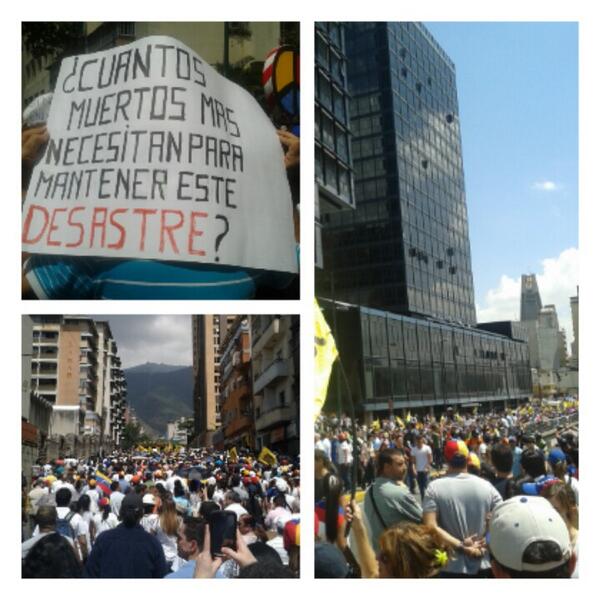 ¿CUANTOS
MUERTOS MAS
NECESITAN PARA
MANTENER ESTE
DESASTRE?